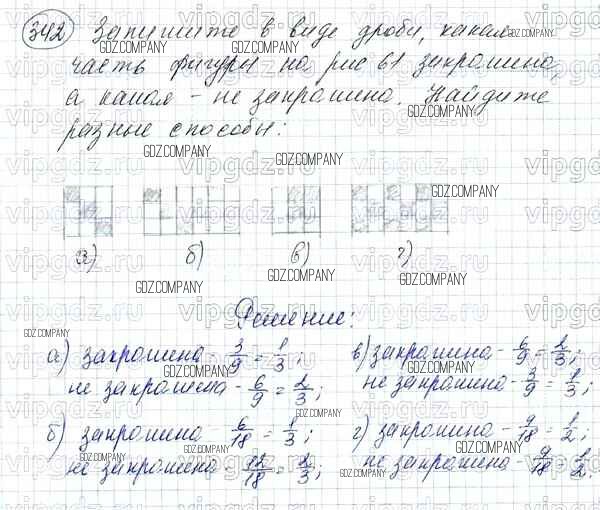 342 Запишите в виде дроби, какая
часть фигуры на рис 61 закрашена,
а какая - не закрашена. Найдите
разные способы:
а) б) в) г)
Решение:
а) закрашена - 3/9 = 1/3;
не закрашена - 6/9 = 2/3;
б) закрашена 6/18 = 1/3;
не закрашена - 12/18 = 2/3;
в) закрашена - 6/9 = 2/3;
не закрашена - 3/9 = 1/3;
г) закрашена - 9/18 = 1/2;
не закрашена - 9/18 = 1/2.
vipgdz.ru
GDZ.COMPANY